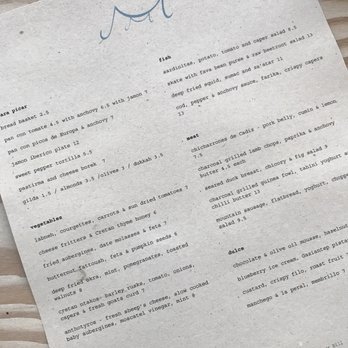 para picar
bread basket 2.5
pan con tomate 4.5 with anchovy 6.5 with jamon 7
pan con picos de Europa & anchovy 7
jamon iberico plate 12
sweet pepper tortilla 5.5
pastirma and cheese borek 7
gilda 1.5 / almonds 3.5 /olives 3 / dukkah 3.5
vegetables
labneh, courgettes, carrots & sun dried tomatoes 7
cheese fritters & Cretan thyme honey 6
fried aubergines, date molasses & feta 7
butternut fattoush, feta & pumpkin seeds 6
deep fried okra, mint, pomegranates, toasted
walnuts 6
cretan ntakos- barley rusks, tomato, onions,
capers & fresh goats curd 7
anthotyros - fresh sheep's cheese, slow cooked
baby aubergines, moscatel vinegar, mint 8
fish
sardinillas, potato, tomato and caper salad 8.5
skate with fava bean puree & raw beetroot salad 13
deep fried squid, sumac and za'atar 11
cod, pepper & anchovy sauce, farika, crispy capers
13
meat
chicharrones de cadiz - pork belly, cumin & lemon
7.5
chargrilled lamb chops, paprika & anchovy
butter 4.5 each
seared duck breast, chicory & fig salad 9
chargrilled guinea fowl, tahini yoghurt
chilli butter 13
mountain sausage, flatbread, yoghurt,
salad 9.5
dulce
chocolate & olive oil mousse, hazelnut
blueberry ice cream,
custard, crispy filo, roast fruit
manchego & is peral, membrillo 7